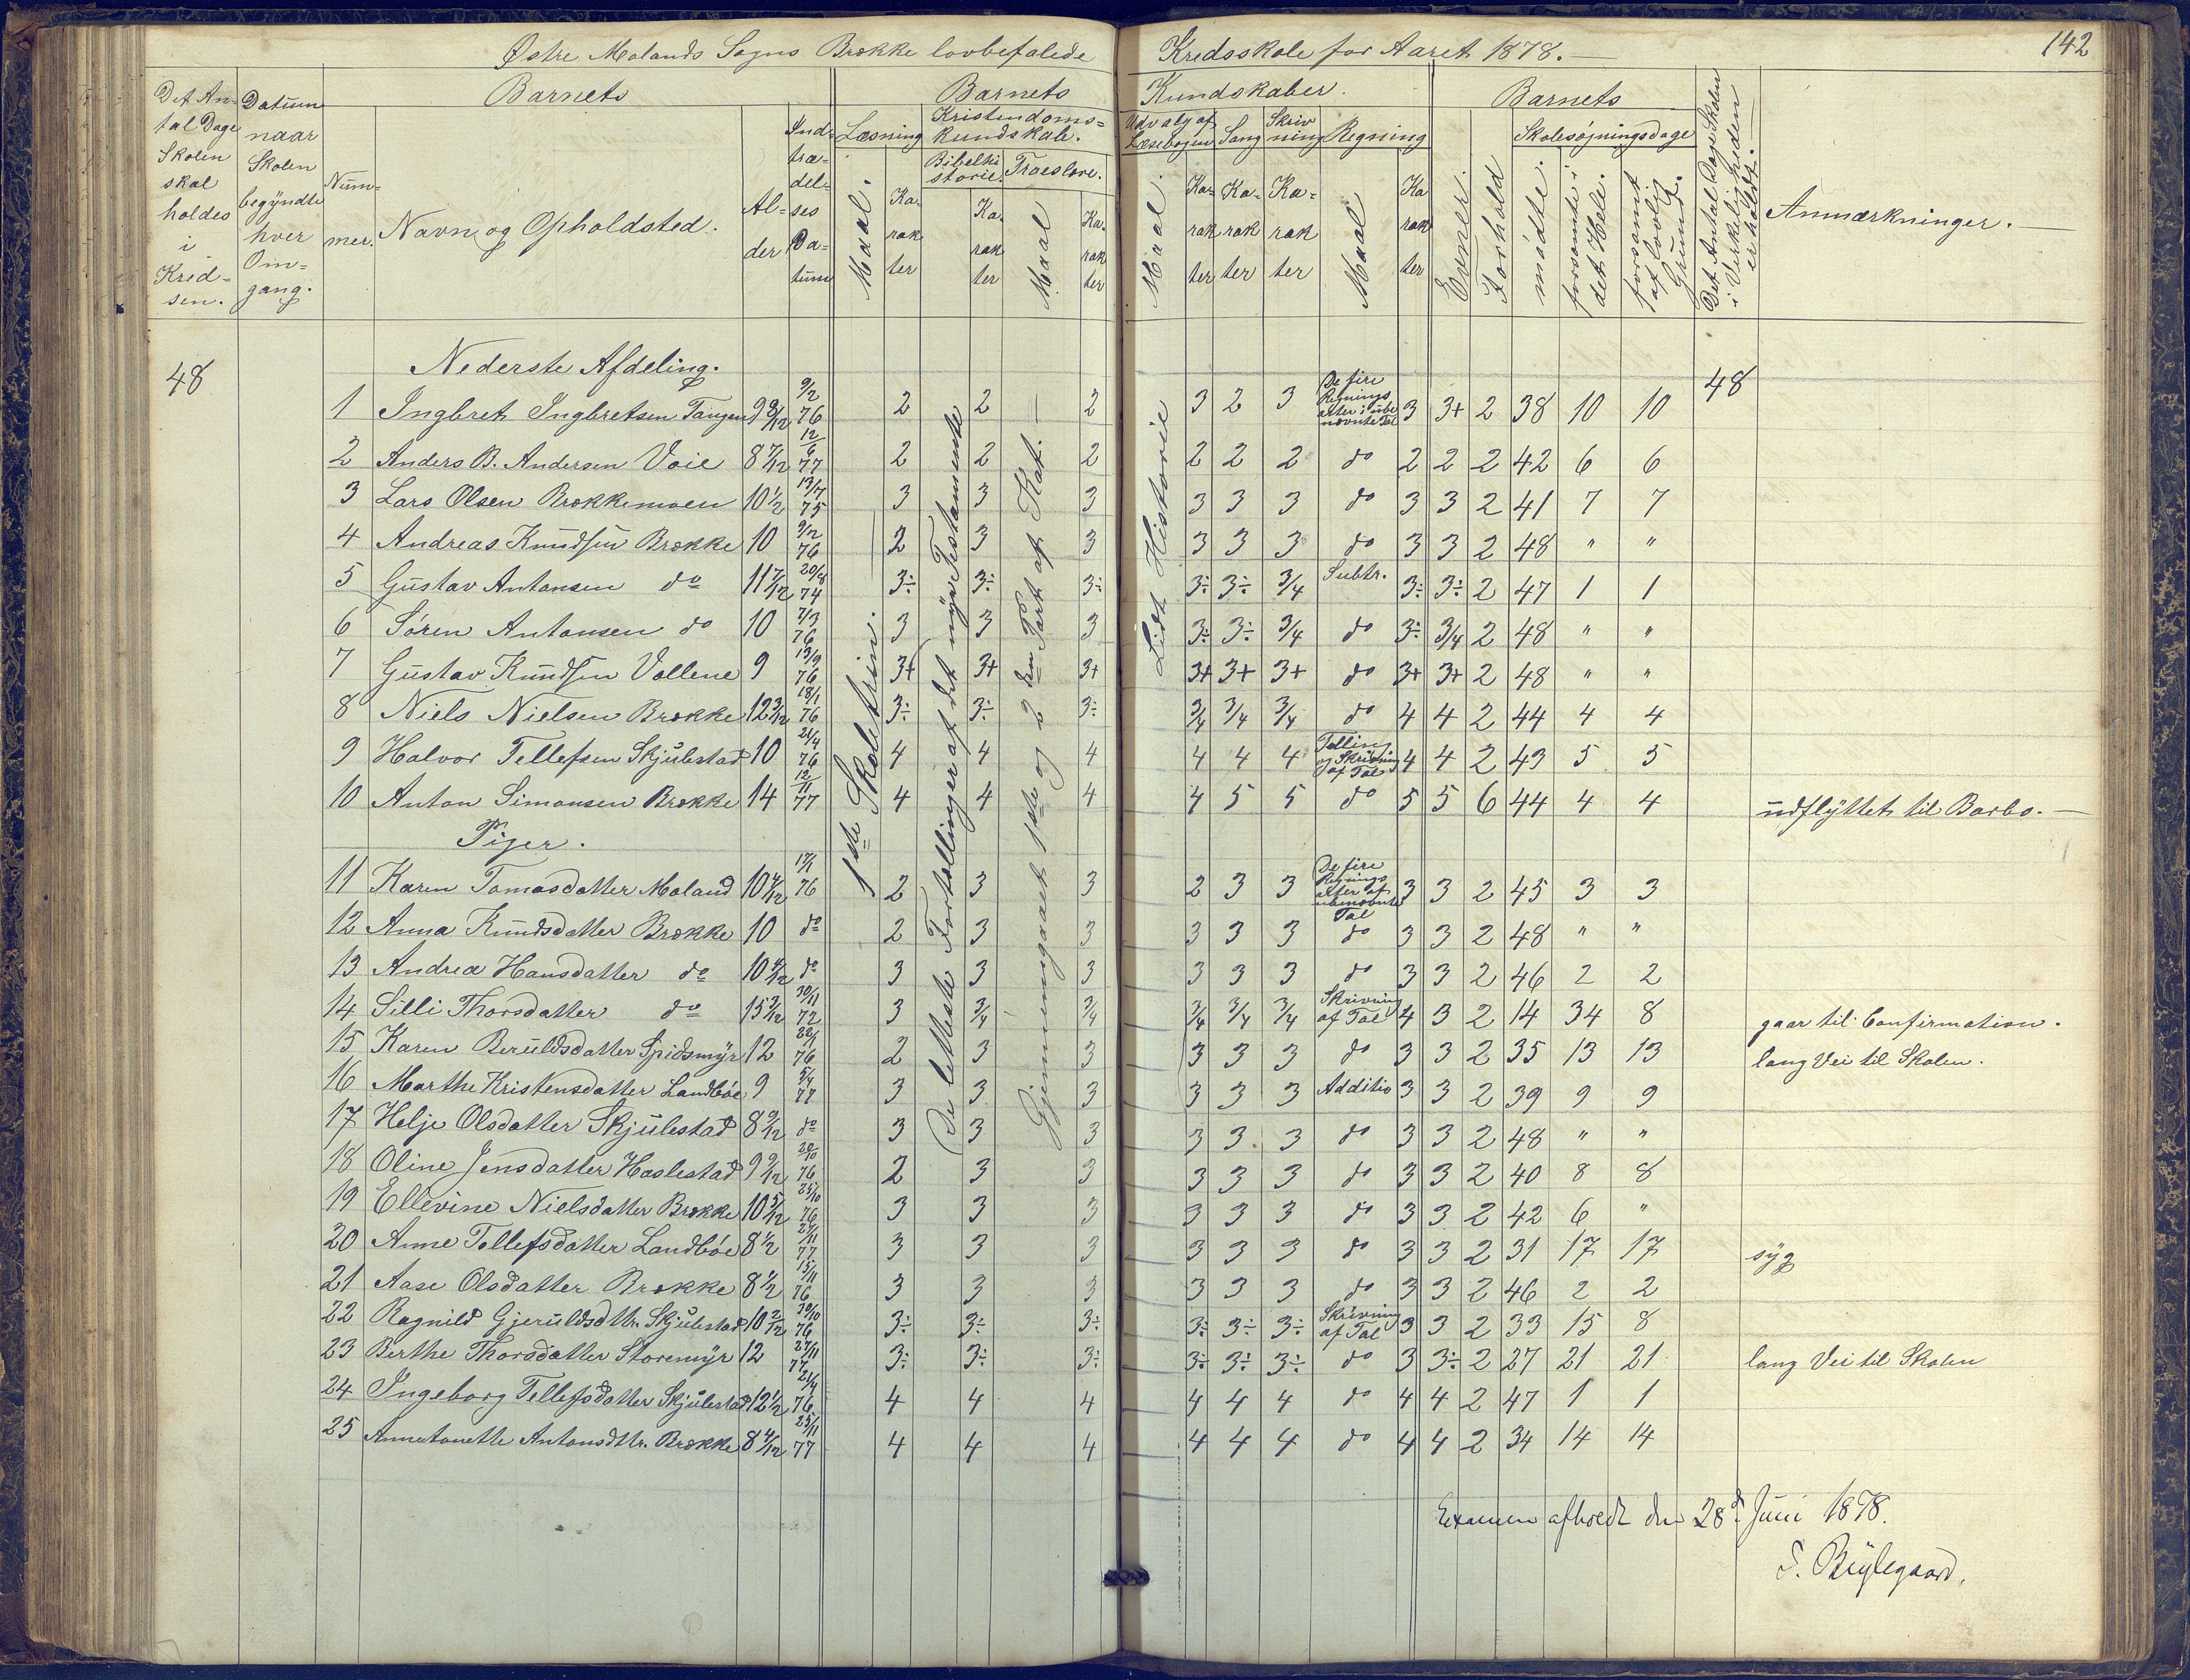 Østre Molands Sogns Brække lovbefalede Kredsskole for Aaret 1878. —
142
Det Antal Dage Skolen skal holdes i Kredsen.
Datum naar Skolen begyndte hver Omgang.
Barnets
Nummer.
Navn og Opholdsted.
Alder
Indtrædelses Datum
Barnets Kundskaber.
Læsning
Maal.
Karakter
Kristendomskundskab.
Bibelhistorie.
Karakter
Troeslære.
Maal
Karakter
Udvalg af Læsebogen
Maal.
Karakter
Sang
Karakter
Skrivning
Karakter
Regning
Maal
Karakter
Barnets
Evner.
Forhold
Skolesøgningsdage
mødte.
forsømte i det Hele.
forsømt af lovlig Grund.
Det Antal Dage Skolen i Virkeligheden er holdt.
Anmærkninger. —
48
Nederste Afdeling.
48
1ste Skoletrin.
De letteste Fortællinger af det nye Testamente
Gjennemgaaet 1ste og 2den Part af Kat. —
Lidt Historie
1 Ingbret Ingbretsen Tangen 9 8/12 9/2 76 2 2 2 3 2 3 De fire Regningsarter i ubenævnte Tal 3 3+ 2 38 10 10
2 Anders B. Andersen Voie 8 7/12 12/6 77 2 2 2 2 2 2 do 2 2 2 42 6 6
3 Lars Olsen Brækkemoen 10 1/2 13/7 75 3 3 3 3 3 3 do 3 3 2 41 7 7
4 Andreas Knudsen Brække 10 9/2 76 2 3 3 3 3 3 do 3 3 2 48 " "
5 Gustav Antonsen do 11 7/12 20/8 74 3÷ 3÷ 3÷ 3÷ 3÷ 3/4 Subtr. 3÷ 3÷ 2 47 1 1
6 Søren Antonsen do 10 7/3 76 3 3 3 3÷ 3÷ 3/4 do 3÷ 3/4 2 48 " "
7 Gustav Knudsen Vollene 9 19/9 76 3+ 3+ 3+ 3+ 3+ 3+ do 3+ 3+ 2 48 " "
8 Niels Nielsen Brække 12 3/12 18/1 76 3÷ 3÷ 3÷ 3/4 3/4 3/4 do 4 4 2 44 4 4
9 Halvor Tellefsen Skjulestad 10 21/4 76 4 4 4 4 4 4 Telling og Skrivning af Tal 4 4 2 43 5 5
10 Anton Simonsen Brække 14 12/11 77 4 4 4 4 5 5 do 5 5 6 44 4 4 udflyttet til Barbo. —
Piger.
11 Karen Tomasdatter Moland 10 4/12 17/1 76 2 3 3 2 3 3 De fire Regningsarter af ubenævnte Tal 3 3 2 45 3 3
12 Anna Knudsdatter Brække 10 do 2 3 3 3 3 3 do 3 3 2 48 " "
13 Andrea Hansdatter do 10 4/12 do 3 3 3 3 3 3 do 3 3 2 46 2 2
14 Silli Thorsdatter do 15 3/12 30/11 72 3 3/4 3/4 3/4 3/4 3/4 Skrivning af Tal 4 3 2 14 34 8 gaar til Confirmation.
15 Karen Beruldsdatter Spidsmyr 12 22/1 76 2 3 3 3 3 3 do 3 3 2 35 13 13 lang Vei til Skolen.
16 Marthe Kristensdatter Landbøe 9 5/4 77 3 3 3 3 3 3 Additio 3 3 2 39 9 9
17 Helje Olsdatter Skjulestad 8 9/12 do 3 3 3 3 3 3 do 3 3 2 48 " "
18 Oline Jensdatter Haslestad 9 9/12 20/10 76 2 3 3 3 3 3 do 3 3 2 40 8 8
19 Ellevine Nielsdatter Brække 10 5/12 25/10 76 3 3 3 3 3 3 do 3 3 2 42 6 "
20 Anne Tellefsdatter Landbøe 8 1/2 27/11 77 3 3 3 3 3 3 do 3 3 2 31 17 17 syg
21 Aase Olsdatter Brække 8 1/2 15/11 76 3 3 3 3 3 3 do 3 3 2 46 2 2
22 Ragnild Gjeruldsdttr. Skjulestad 10 2/12 30/10 76 3÷ 3÷ 3÷ 3÷ 3÷ 3÷ Skrivning af Tal 3 3 2 33 15 8
23 Berthe Thorsdatter Storemyr 12 27/11 77 3÷ 3÷ 3÷ 3÷ 3÷ 3÷ do 3 3÷ 2 27 21 21 lang Vei til Skolen
24 Ingeborg Tellefsdatter Skjulestad 12 1/2 21/4 76 4 4 4 4 4 4 do 4 4 2 47 1 1
25 Annetonette Antonsdttr. Brække 8 4/12 25/11 77 4 4 4 4 4 4 do 4 4 2 34 14 14
Examen afholdt den 28d Juni 1878.